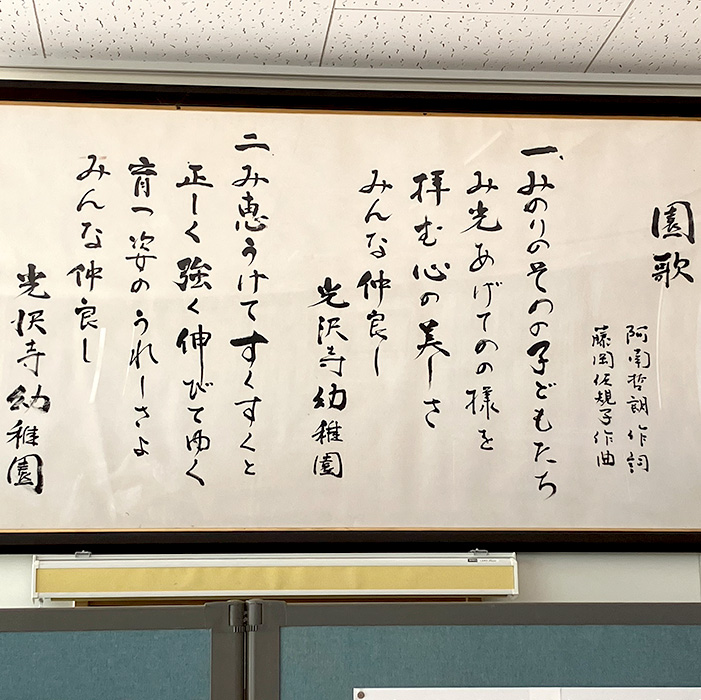 園歌
阿南哲朗 作詞
藤岡佐規子 作曲
一、みのりのそのの子どもたち
み光あげてのの様を
拝む心の美しさ
みんな仲良し
光沢寺幼稚園
二 み恵うけてすくすくと
正しく強く伸びてゆく
育つ姿のうれしさよ
みんな仲良し
光沢寺幼稚園